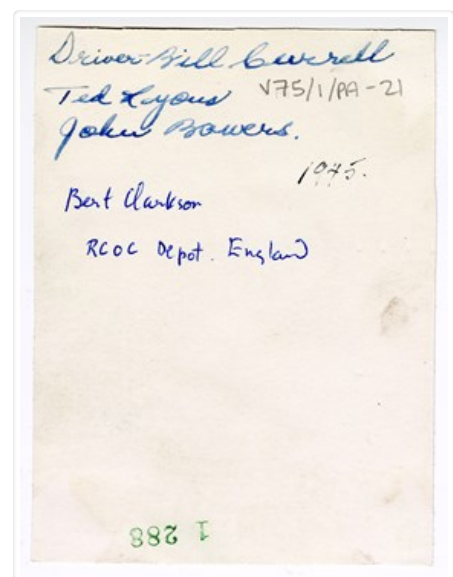 Driver Bill Currell
Ted Lyons V75/1/PA-21
John Bowers.
1945.
Bert Clarkson
RCOC Depot. England
1 288